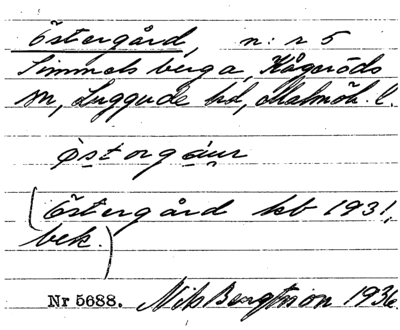 Östergård, n:r 5
Simmelsberga, Kågeröds
sn, Luggude hd, Malmöh. l.
östorgåur
(Östergård kb 1931,
bek.)
Nr 5688. Nils Bengtsson 1936.